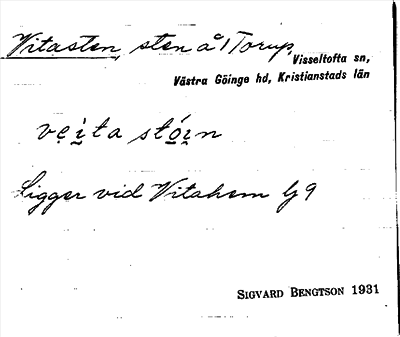 Vitasten, sten å Torup,
Visseltofta sn,
Västra Göinge hd, Kristianstads län
vẹi̯ta stó̤i̤n
Ligger vid Vitahem
SIGVARD BENGTSON 1931